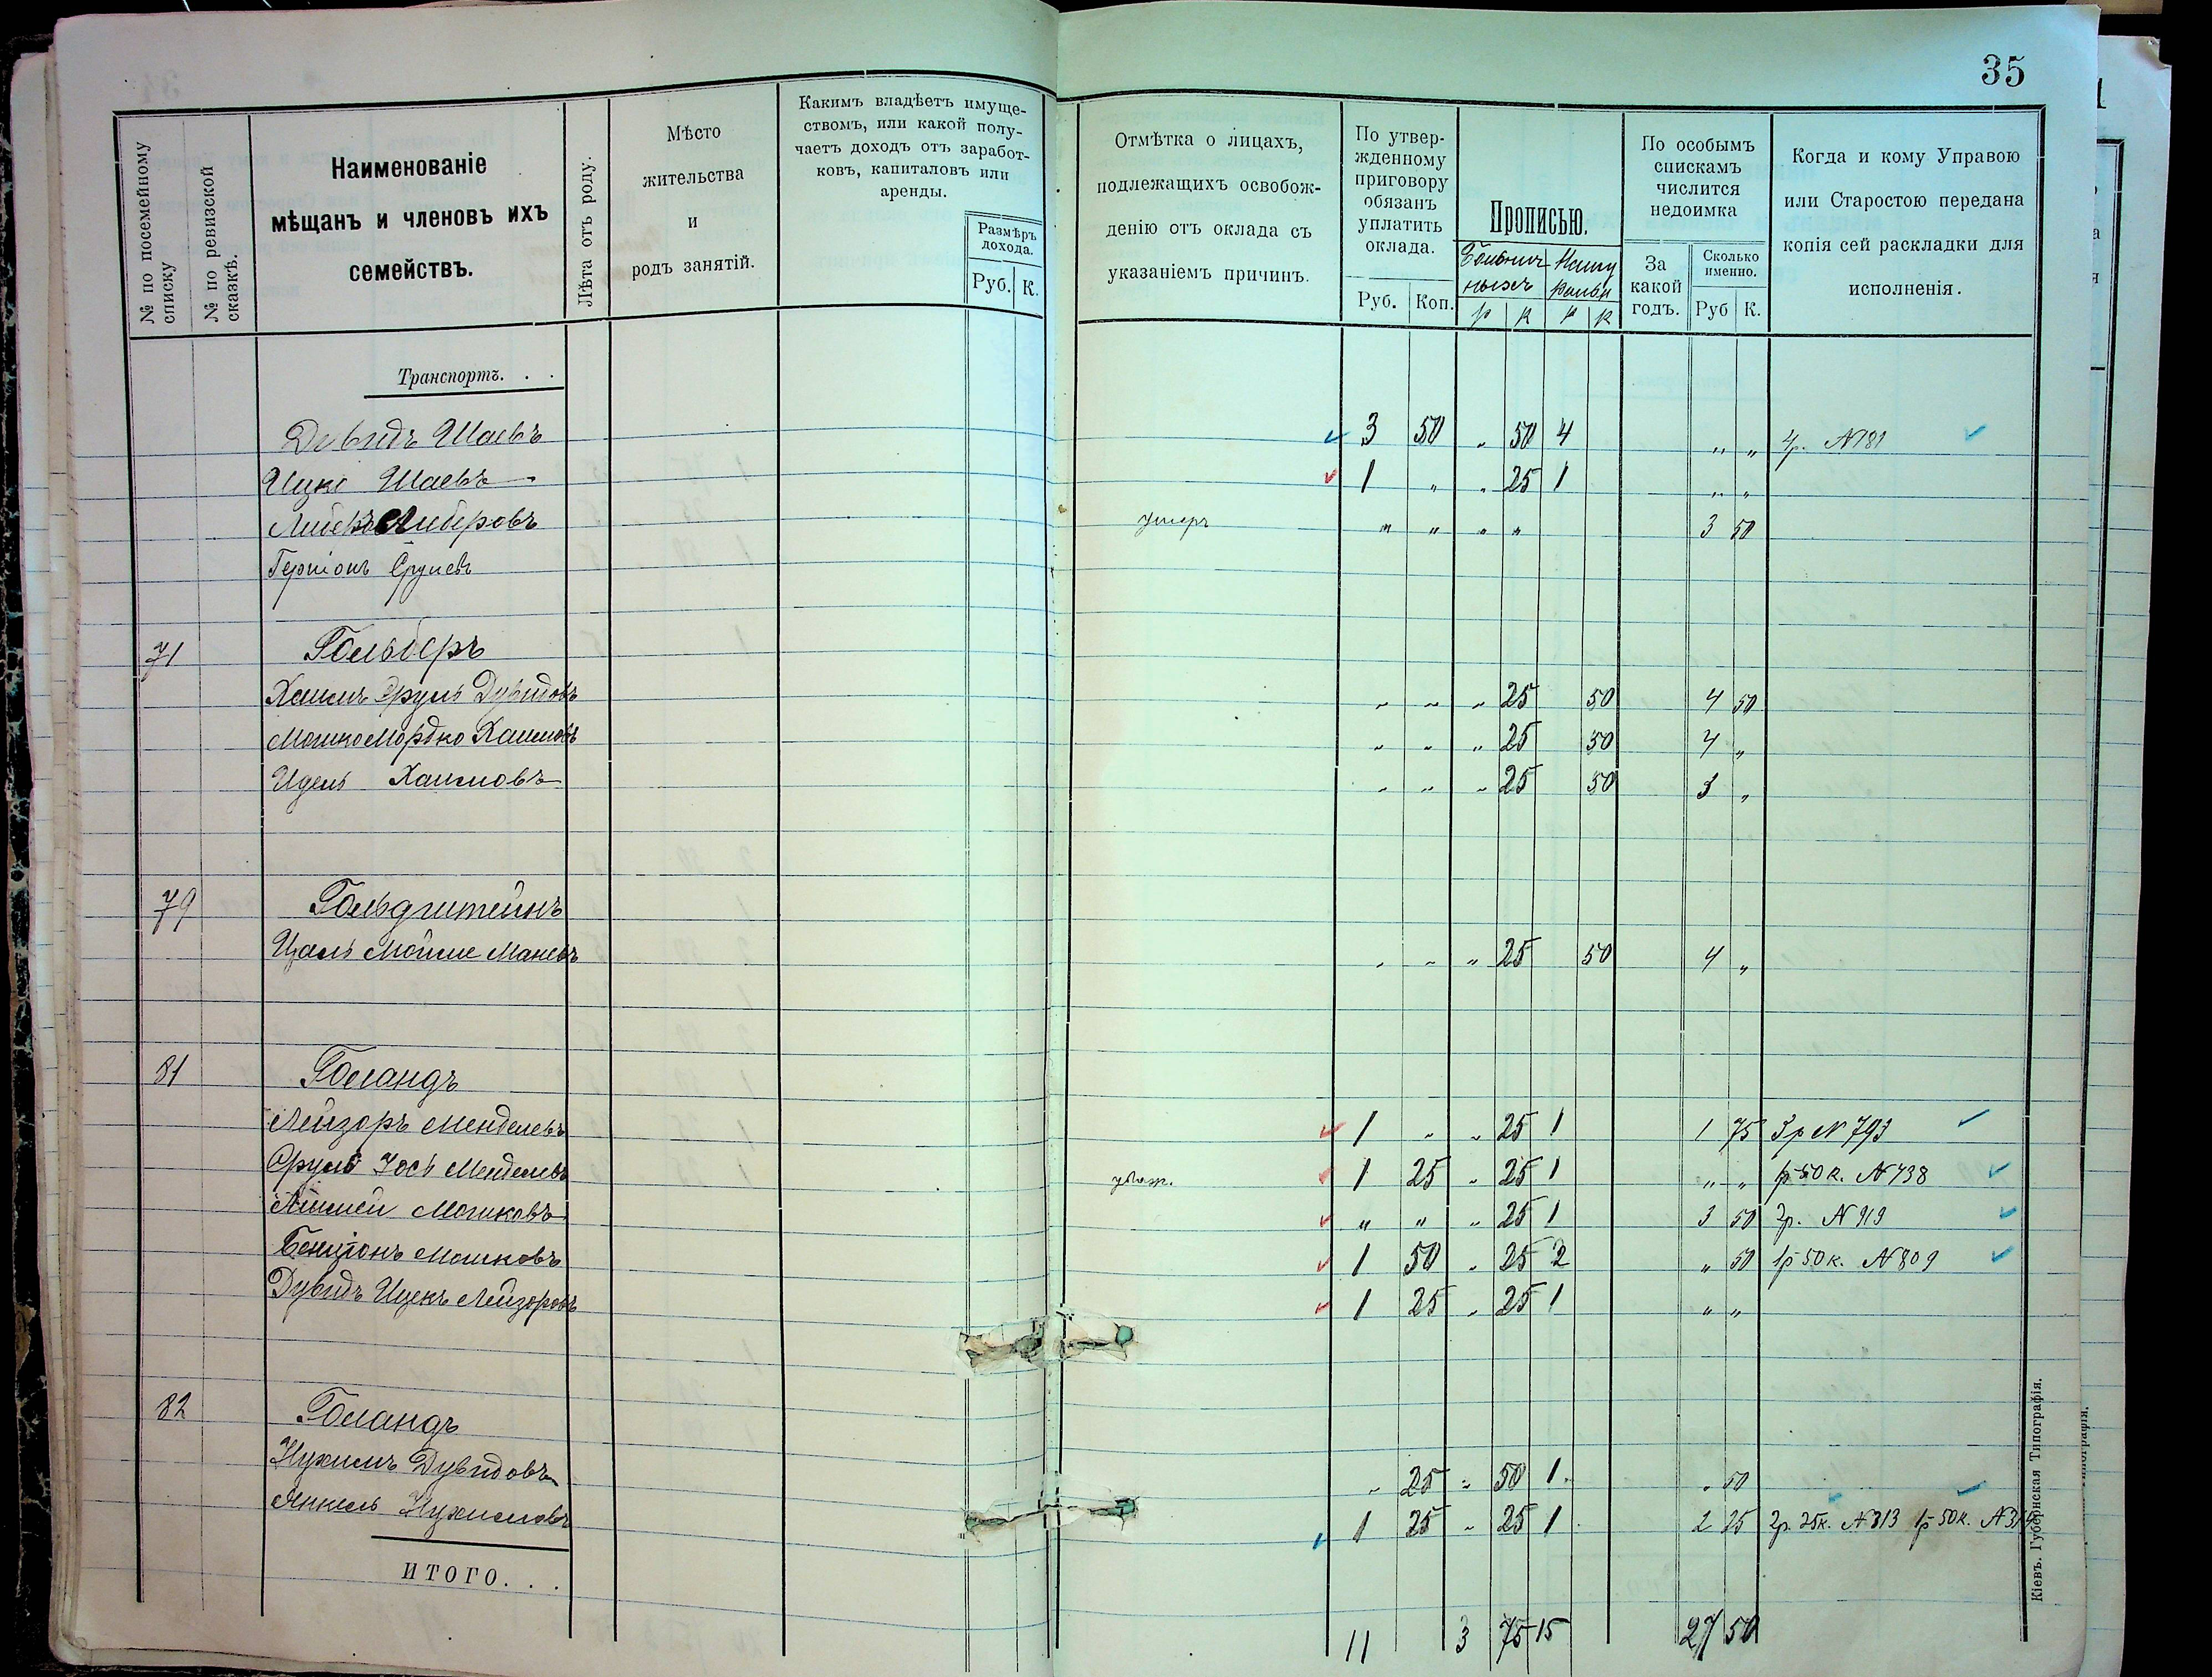 35
№ по посемейному списку
№ по ревизской сказкѣ.
Наименованіе
мѣщанъ и членовъ ихъ
семействъ.
Лѣта отъ роду.
Мѣсто
жительства
и
родъ занятій.
Какимъ владѣетъ имуще-
ствомъ, или какой полу-
чаетъ доходъ отъ заработ-
ковъ, капиталовъ или
аренды.
Размѣръ
дохода.
Руб. К.
Отмѣтка о лицахъ,
подлежащихъ освобож-
денію отъ оклада съ
указаніемъ причинъ.
По утвер-
жденному
приговору
обязанъ
уплатить
оклада.
Руб. Коп.
Прописью.
Больнич
ныхъ
р к р к
По особымъ
спискамъ
числится
недоимка
За
какой
годъ.
Сколько
именно.
Руб К.
Когда и кому Управою
или Старостою передана
копія сей раскладки для
исполненія.
Транспортъ. . .
Давидъ Шаевъ 3 50 „ 50 4 „ „ 4р. N 181
Ицко Шаевъ 1 „ „ 25 1 „ „
Либеръ Либеровъ умеръ „ „ „ „ 3 50
Сруневъ
71 Гольберъ
Хаимъ Сруль Дувидовъ „ „ „ 25 50 4 50
Мошко Мордко Хаимовъ „ „ „ 25 50 4 „
Идель Хаимовъ „ „ „ 25 50 3 „
79 Гольдштейнъ
Цаль Мойше Маневъ „ „ „ 25 50 4 „
81 Голандъ
Лейзоръ Менделевъ 1 „ „ 25 1 1 75 3р N 793
Сруль Іось Менделевъ 1 25 „ 25 1 „ „ 1р 50 к. N 738
Мошковъ „ „ „ 25 1 3 50 2р. N 919
Бенціонъ Мошковъ 1 50 „ 25 2 „ 50 1р 50 к. N 809
Дувидъ Ицекъ Лейзоровъ 1 25 „ 25 1 „ „
82 Голандъ
Нухимъ Дувидовъ „ 25 „ 50 1 „ 50
Янкель Нухимовъ 1 25 „ 25 1 2 25 2р. 25к. N 313 1р 50к.
ИТОГО. . .
11 3 75 15 27 50
Кіевъ. Губернская Типографія.